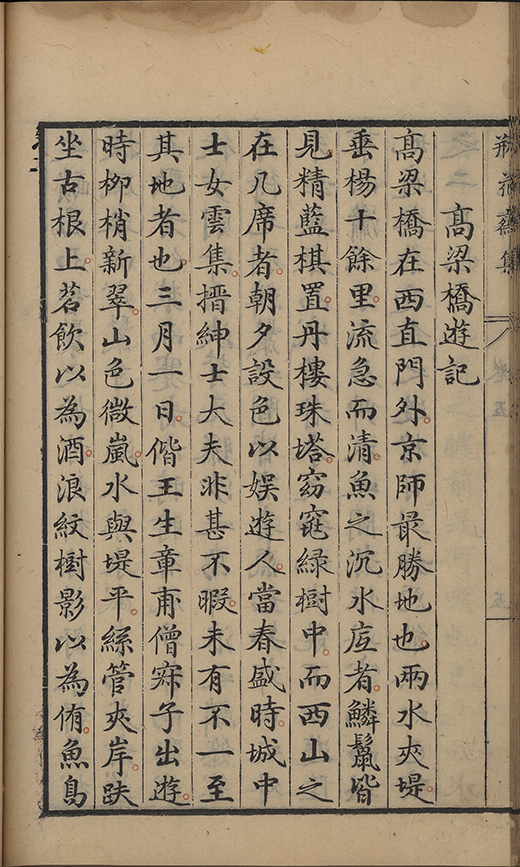 瓶花齋集
卷五
五
高梁橋遊記
高梁橋在西直門外。京師最勝地也。兩水夾堤。
垂楊十餘里。流急而清。魚之沉水底者。鱗鬣皆
見。精藍棋置。丹樓珠塔。窈窕綠樹中。而西山之
在凡席者。朝夕設色以娛遊人。當春盛時。城中
士女雲集。搢紳士大夫非甚不暇。未有不一至
其地者也。三月一日。偕王生章甫僧寂子出遊。
時柳梢新翠。山色微嵐。水與堤平。絲管夾岸。趺
坐古根上。茗飲以為酒。浪紋樹影以為侑。魚鳥